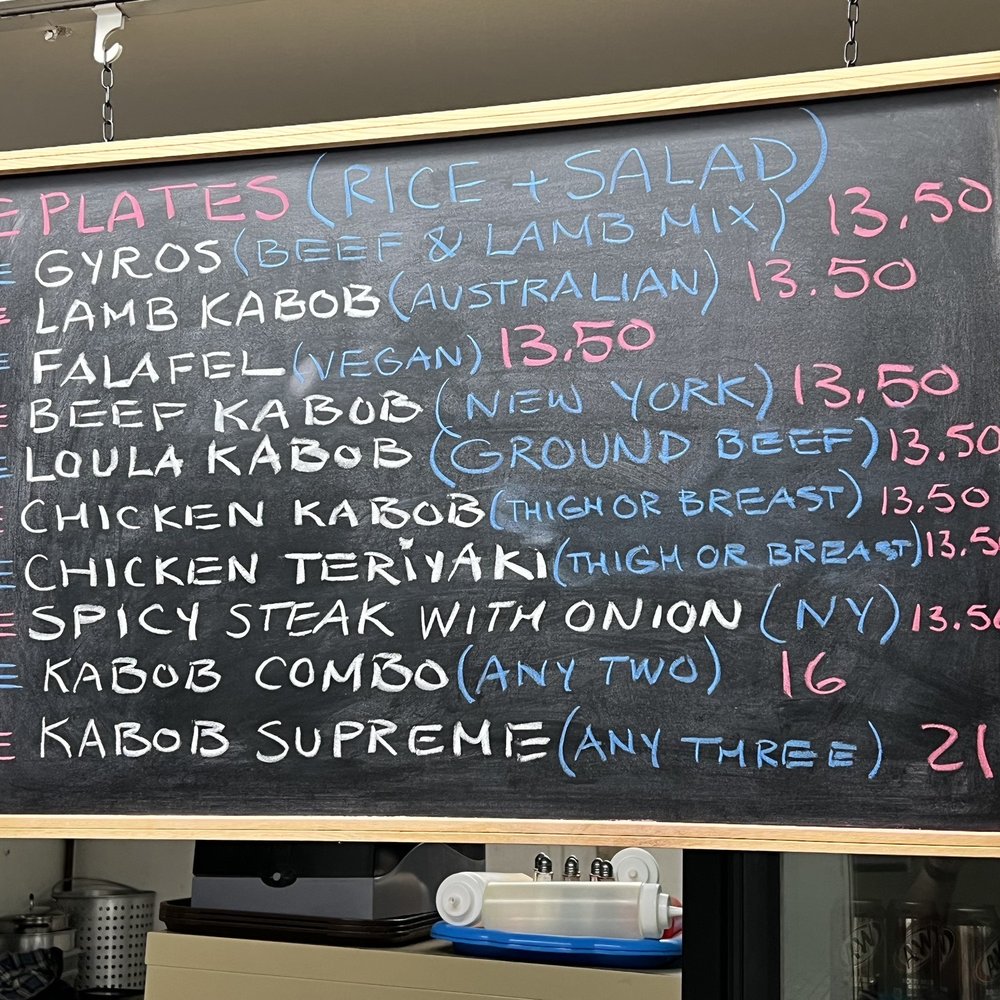 E PLATES (RICE + SALAD)
E GYROS (BEEF & LAMB MIX) 13.50
E LAMB KABOB (AUSTRALIAN) 13.50
E FALAFEL (VEGAN) 13.50
E BEEF KABOB (NEW YORK) 13.50
E LOULA KABOB (GROUND BEEF) 13.50
E CHICKEN KABOB (THIGH OR BREAST) 13.50
E CHICKEN TERIYAKI (THIGH OR BREAST) 13.50
E SPICY STEAK WITH ONION (NY) 13.50
E KABOB COMBO (ANY TWO) 16
E KABOB SUPREME (ANY THREE) 21
A&W